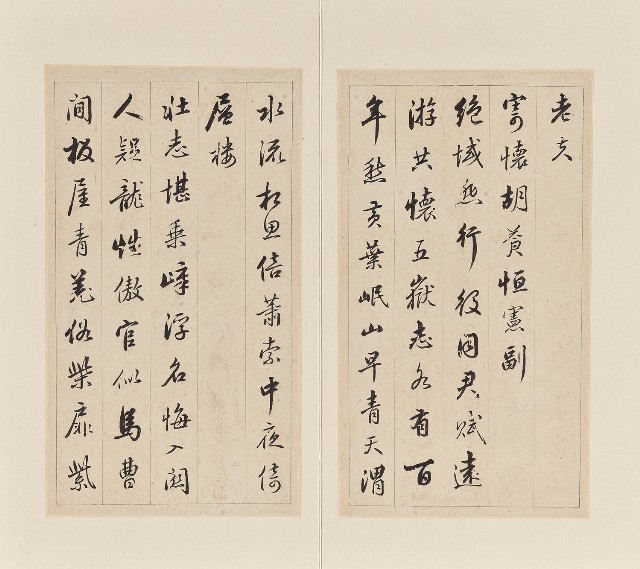 老夫
寄懷胡恒憲副
絕域愁行役因君賦遠
游共懷五嶽志各有百
年愁黃葉岷山早青天渭
水流相思倍蕭索中夜倚
層樓
壯志堪乘嶂浮名悔入關
人疑龍性傲官似馬曹
間板屋青羌俗柴扉紫